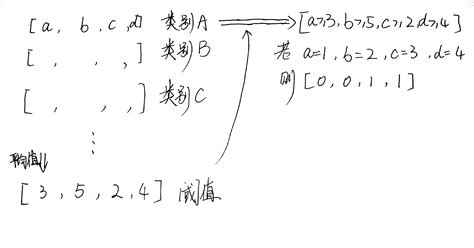 [a, b, c, d] 类别A ⟹ [a≥3, b≥5, c≥2, d≥4]
[ , , , ] 类别B
若 a=1, b=2, c=3, d=4
[ , , , ] 类别C
则 [0, 0, 1, 1]
⋮
平均值↓
[3, 5, 2, 4] 阈值